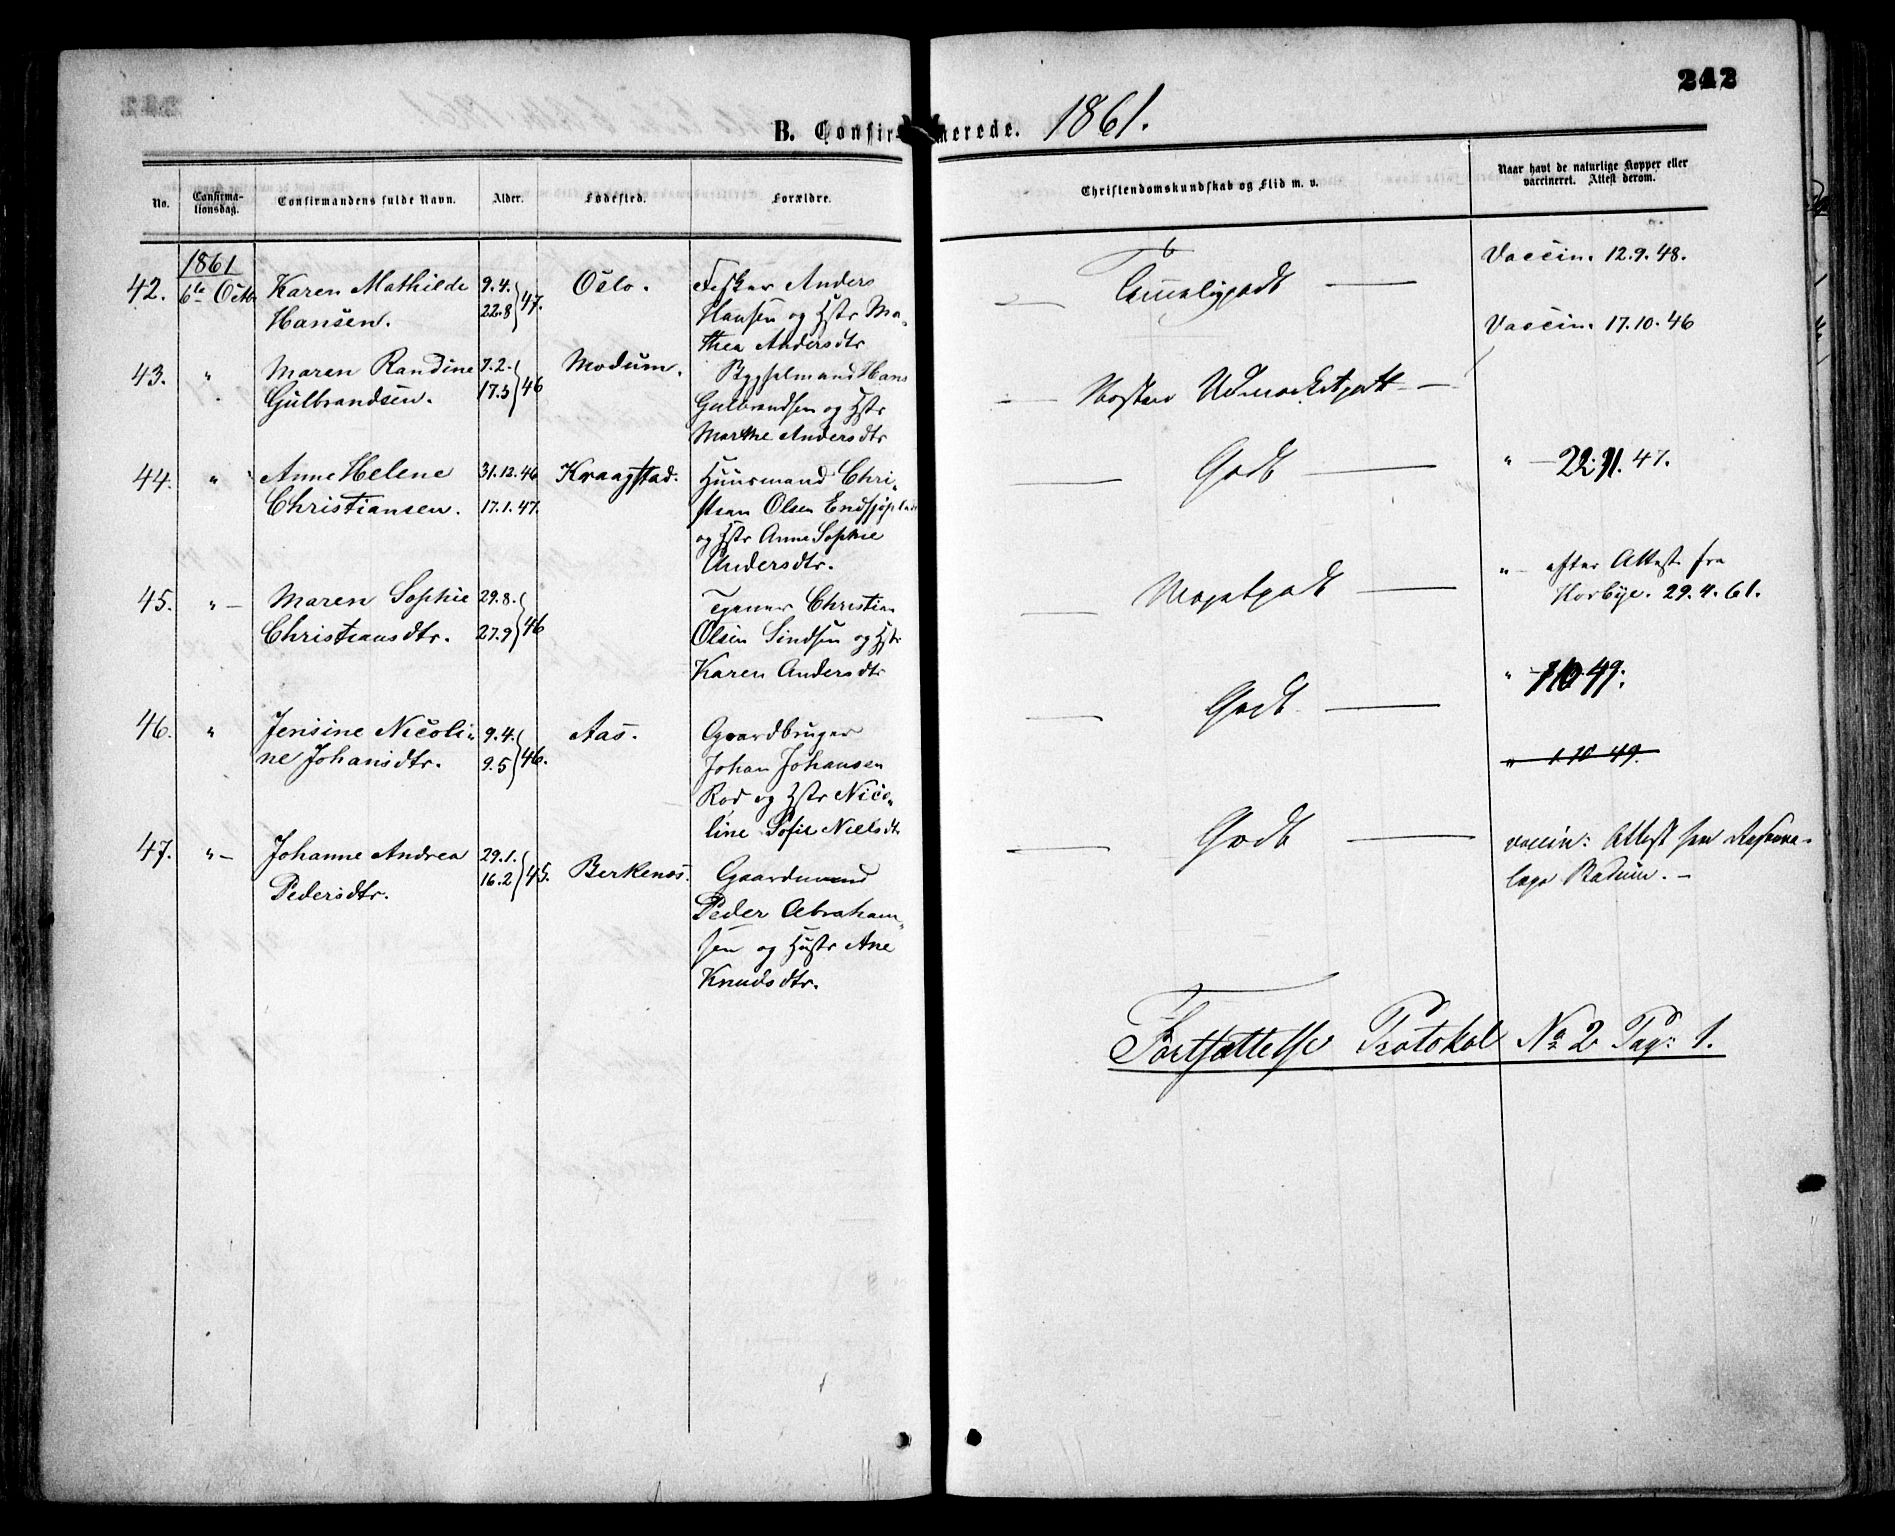 242
B. Confirmerede. 1861.
No.
Confirma-
tionsdag.
Confirmandens fulde Navn.
Alder.
Fødested.
Forældre.
Christendomskundskab og Flid m. v.
Naar havt de naturlige Kopper eller
vaccineret. Attest derom.
1861
42. 6te Octbr
Karen Mathilde
Hansen.
9.4.
22.8 } 47.
Oslo.
Fisker Anders
Hansen og Hstr Ma-
thea Andersdtr
Temmeligodt
Vaccin. 12.9.48.
43. "
Maren Randine
Gulbrandsen.
7.2.
17.3 } 46
Modum.
Bygselmand Hans
Gulbrandsen og Hstr
Marthe Andersdtr
Næsten Udmærketgodt
Vaccin. 17.10.46
44. "
Anne Helene
Christiansen.
31.12.46
17.1.47.
Kraagstad.
Huusmand Chri-
stian Olsen
og Hstr Anne Sophie
Andersdtr.
Godt
" 22.11.47.
45. " -
Maren Sophie
Christiansdtr.
29.8.
27.9 } 46
Christian
Olsen og Hstr
Karen Andersdtr
Megetgodt
" - efter Attest fra
Korbye. 29.4.61.
46. "
Jensine Nicoli-
ne Johansdtr.
9.4.
9.5 } 46.
Aas.
Gaardbruger
Johan Johansen
Rod og Hstr Nico-
line Sofie Nielsdtr
Godt
" 49.
" 1.10 49.
47. " -
Johanne Andrea
Pedersdtr.
29.1.
16.2 } 45.
Berkenæs.
Gaardmand
Peder Abraham-
sen og Hustr Ane
Knudsdtr.
Godt
vaccin: Attest fra
læge
Fortsættelse Protokol No 2 Pag: 1.